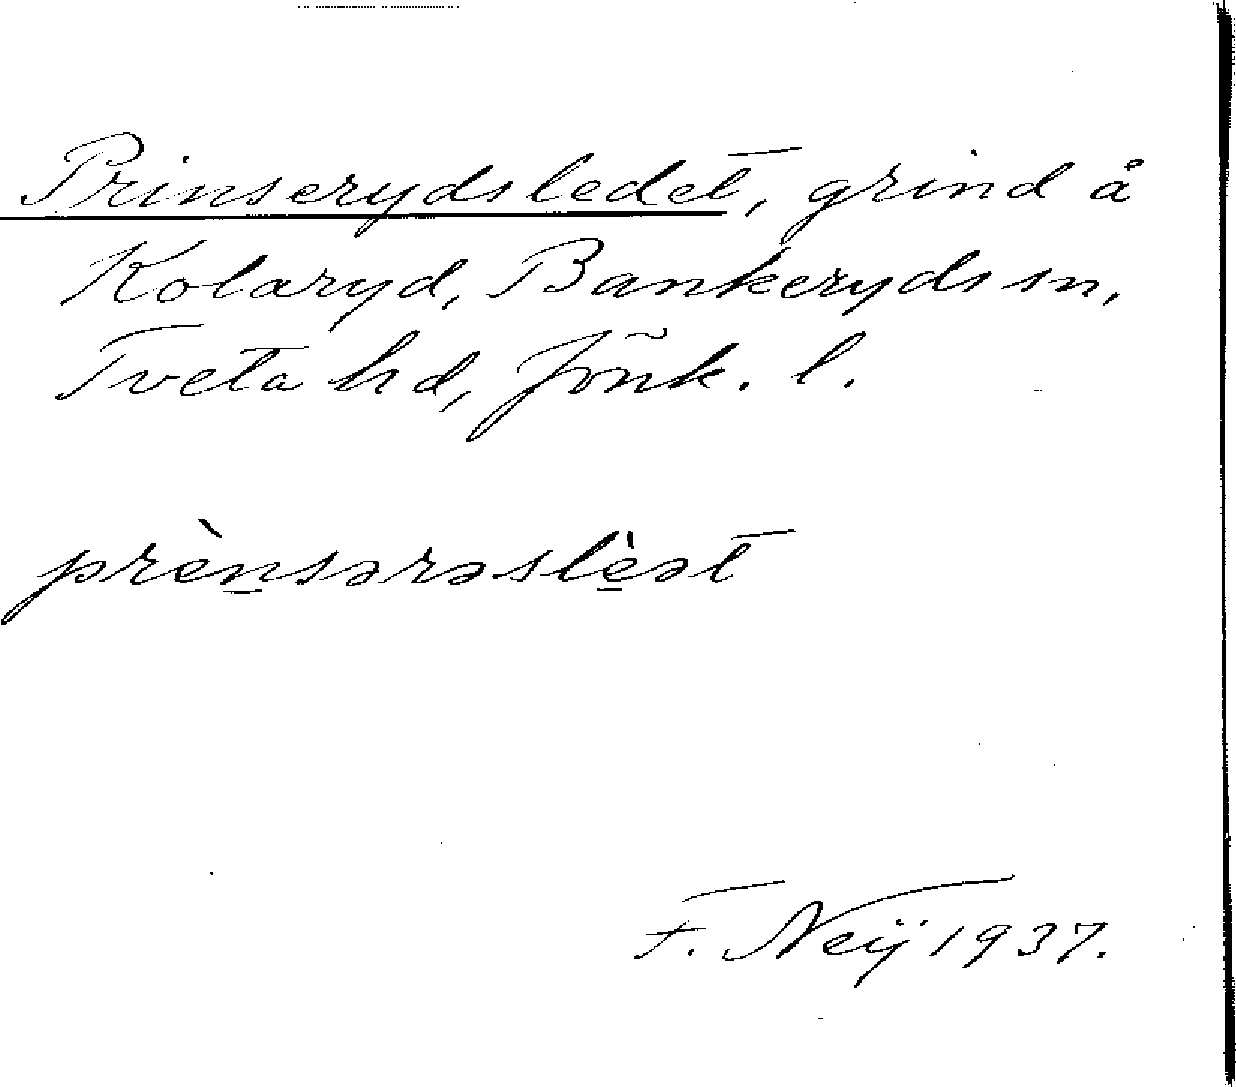 Prinserydsledet, grind å
Kolaryd, Bankeryds sn,
Tveta hd, Jönk. l.
prèn̲sərəslè̲ət
F. Neij 1937.